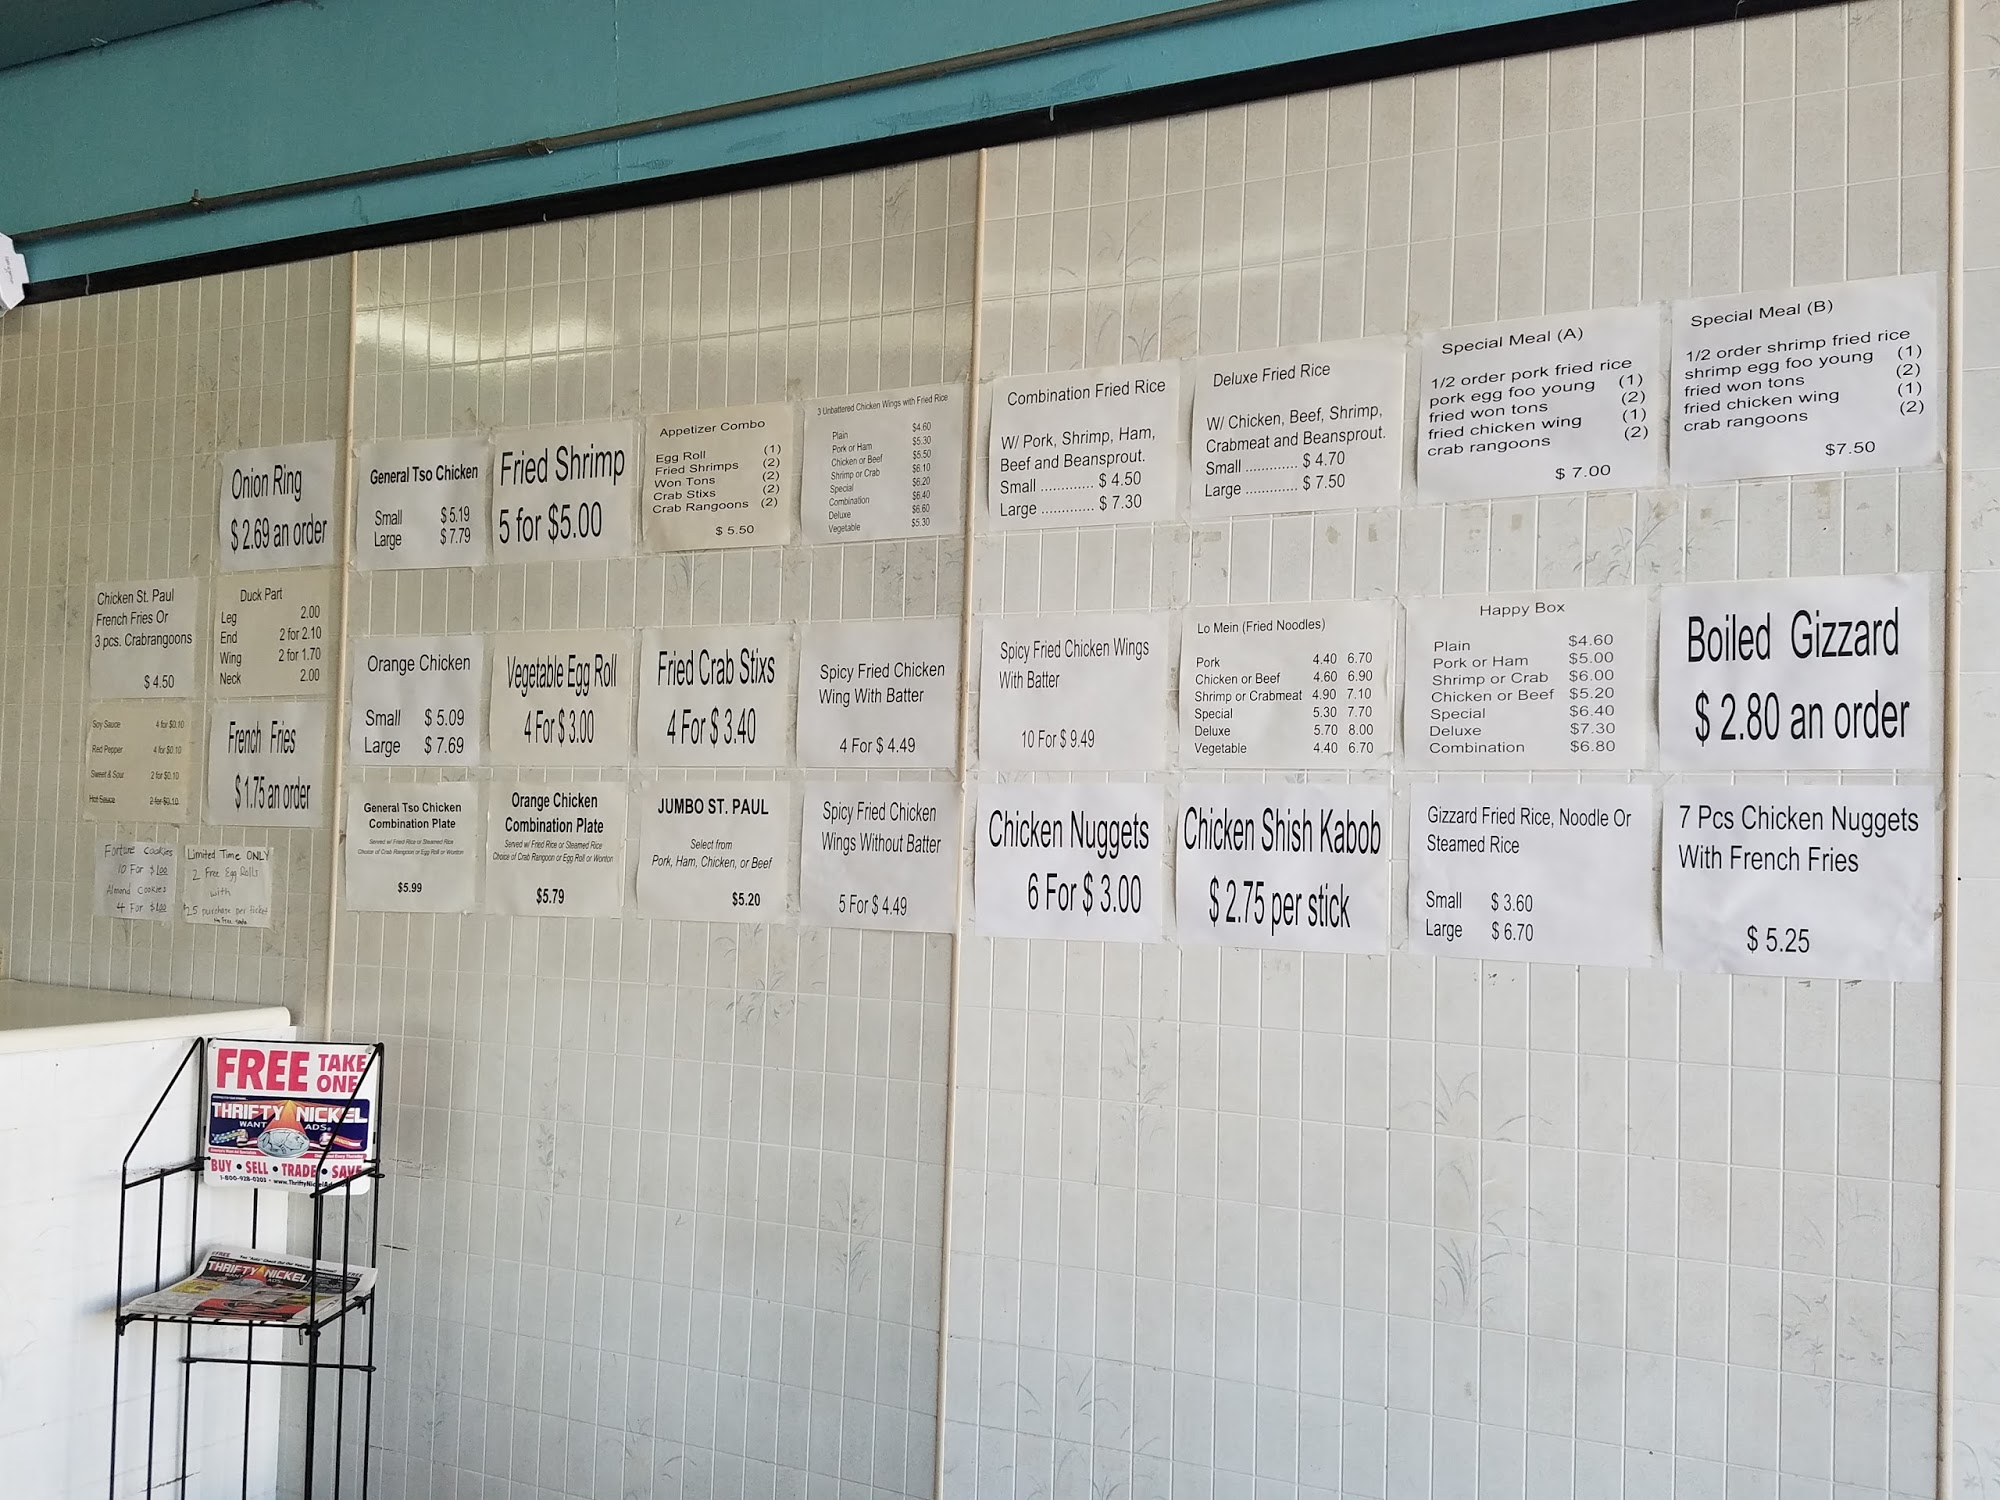 Onion Ring
$ 2.69 an order
General Tso Chicken
Small $ 5.19
Large $ 7.79
Fried Shrimp
5 for $5.00
Appetizer Combo
Egg Roll (1)
Fried Shrimps (2)
Won Tons (2)
Crab Stixs (2)
Crab Rangoons (2)
$ 5.50
3 Unbattered Chicken Wings with Fried Rice
Plain $4.60
Pork or Ham $5.30
Chicken or Beef $5.50
Shrimp or Crab $6.10
Special $6.20
Combination $6.40
Deluxe $6.60
Vegetable $5.30
Combination Fried Rice
W/ Pork, Shrimp, Ham,
Beef and Beansprout.
Small .............. $ 4.50
Large ............. $ 7.30
Deluxe Fried Rice
W/ Chicken, Beef, Shrimp,
Crabmeat and Beansprout.
Small ............. $ 4.70
Large ............. $ 7.50
Special Meal (A)
1/2 order pork fried rice
pork egg foo young (1)
fried won tons (2)
fried chicken wing (1)
crab rangoons (2)
$ 7.00
Special Meal (B)
1/2 order shrimp fried rice
shrimp egg foo young (1)
fried won tons (2)
fried chicken wing (1)
crab rangoons (2)
$7.50
Chicken St. Paul
French Fries Or
3 pcs. Crabrangoons
$ 4.50
Duck Part
Leg 2.00
End 2 for 2.10
Wing 2 for 1.70
Neck 2.00
Orange Chicken
Small $ 5.09
Large $ 7.69
Vegetable Egg Roll
4 For $ 3.00
Fried Crab Stixs
4 For $ 3.40
Spicy Fried Chicken
Wing With Batter
4 For $ 4.49
Spicy Fried Chicken Wings
With Batter
10 For $ 9.49
Lo Mein (Fried Noodles)
Pork 4.40 6.70
Chicken or Beef 4.60 6.90
Shrimp or Crabmeat 4.90 7.10
Special 5.30 7.70
Deluxe 5.70 8.00
Vegetable 4.40 6.70
Happy Box
Plain $4.60
Pork or Ham $5.00
Shrimp or Crab $6.00
Chicken or Beef $5.20
Special $6.40
Deluxe $7.30
Combination $6.80
Boiled Gizzard
$ 2.80 an order
Soy Sauce 4 for $0.10
Red Pepper 4 for $0.10
Sweet & Sour 2 for $0.10
Hot Sauce 2 for $0.10
French Fries
$ 1.75 an order
General Tso Chicken
Combination Plate
Served w/ Fried Rice or Steamed Rice
Choice of Crab Rangoon or Egg Roll or Wonton
$5.99
Orange Chicken
Combination Plate
Served w/ Fried Rice or Steamed Rice
Choice of Crab Rangoon or Egg Roll or Wonton
$5.79
JUMBO ST. PAUL
Select from
Pork, Ham, Chicken, or Beef
$5.20
Spicy Fried Chicken
Wings Without Batter
5 For $ 4.49
Chicken Nuggets
6 For $ 3.00
Chicken Shish Kabob
$ 2.75 per stick
Gizzard Fried Rice, Noodle Or
Steamed Rice
Small $ 3.60
Large $ 6.70
7 Pcs Chicken Nuggets
With French Fries
$ 5.25
Fortune Cookies
10 For $1.00
Almond Cookies
4 For $1.00
Limited Time ONLY
2 Free Egg Rolls
with
$25 purchase per ticket
FREE TAKE
ONE
THRIFTY NICKEL
WANT ADS
BUY • SELL • TRADE • SAVE
1-800-928-0203
FREE
THRIFTY NICKEL
WANT ADS